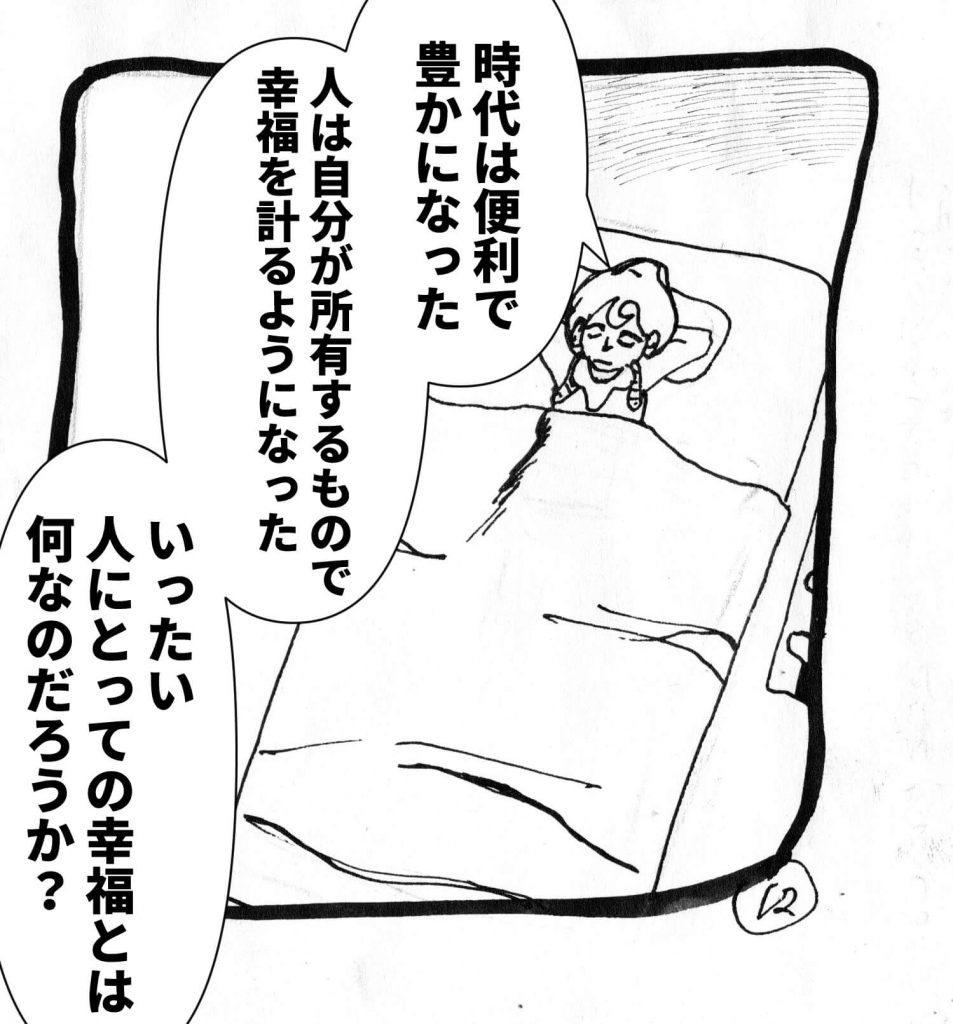 時代は便利で
豊かになった
人は自分が所有するもので
幸福を計るようになった
いったい
人にとっての幸福とは
何なのだろうか？
12